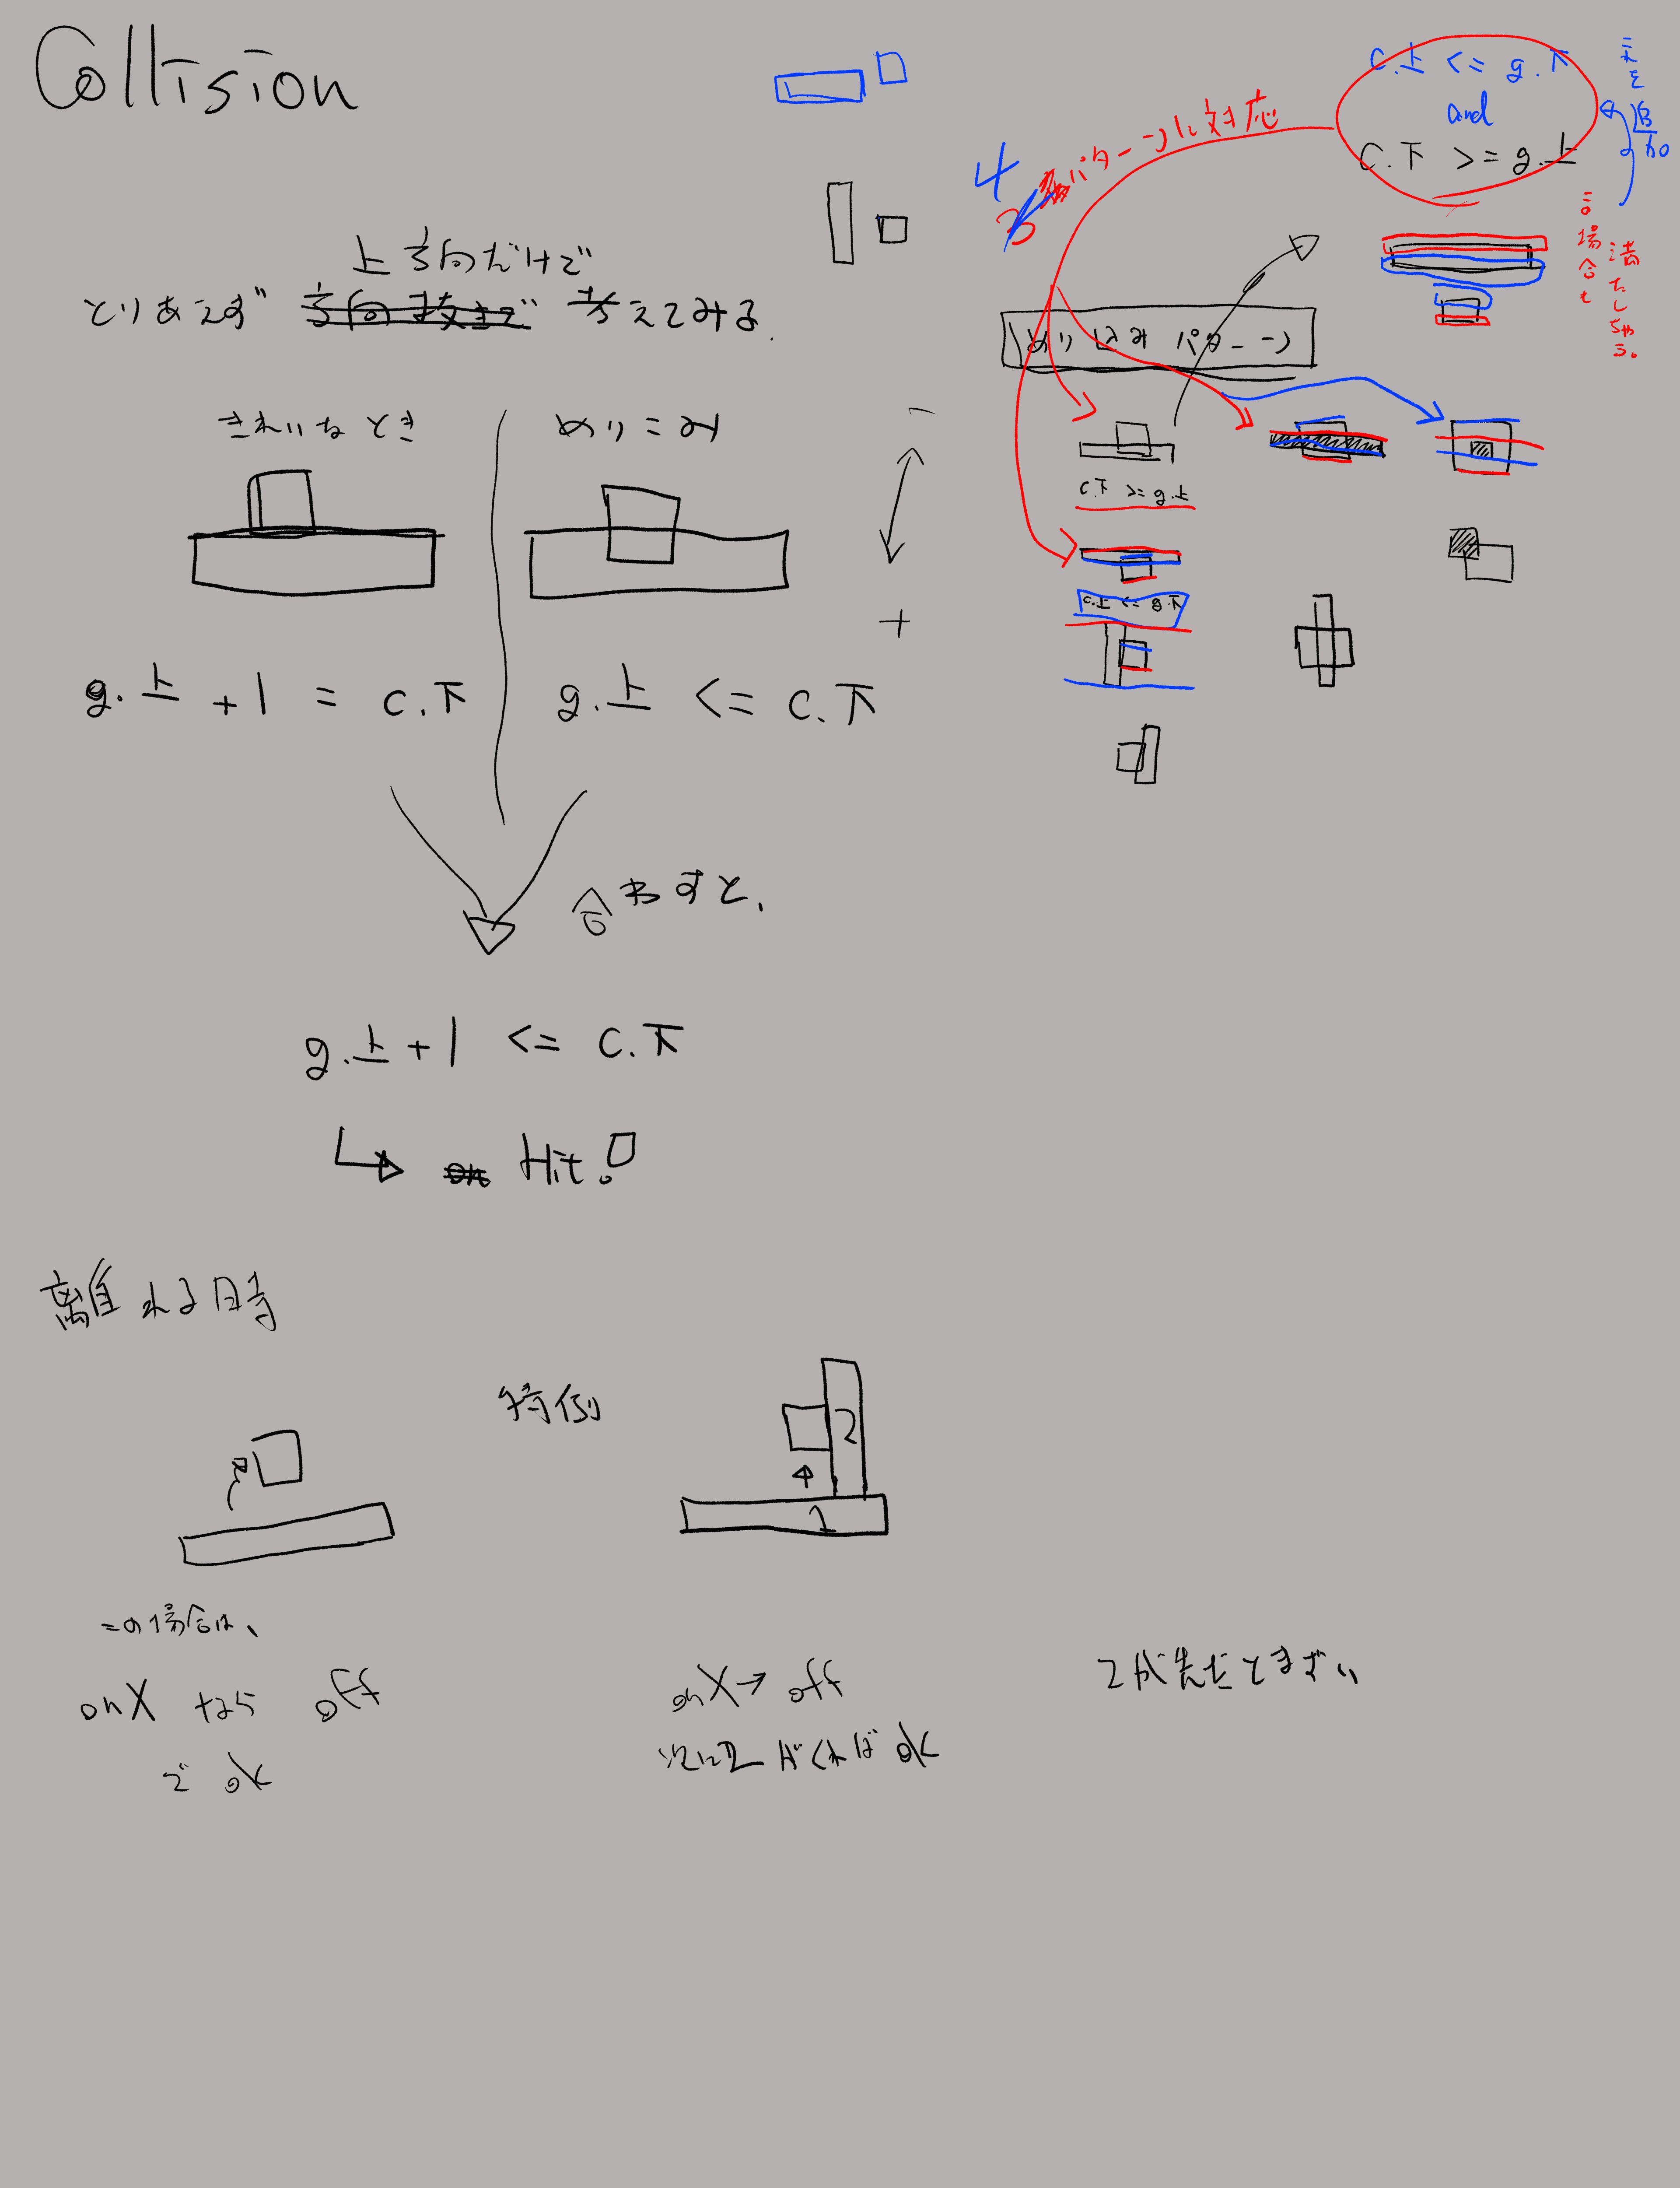 Collision
上方向だけで
とりあえず 方向抜きで 考えてみる.
きれいなとき
めりこみ
-
+
g.上 + 1 = c.下
g.上 <= c.下
合わすと、
g.上 + 1 <= c.下
on Hit!
離れる時
特例
2
1
この場合は、
onX なら off
で ok
onX→ off
次に2がくれば ok
2が先だとまずい
c.上 <= g.下
and
c.下 >= g.上
これを
4
3
パターンに対応
この場合も
満たしちゃう。
めりこみ パターン
c.下 >= g.上
c.上 <= g.下